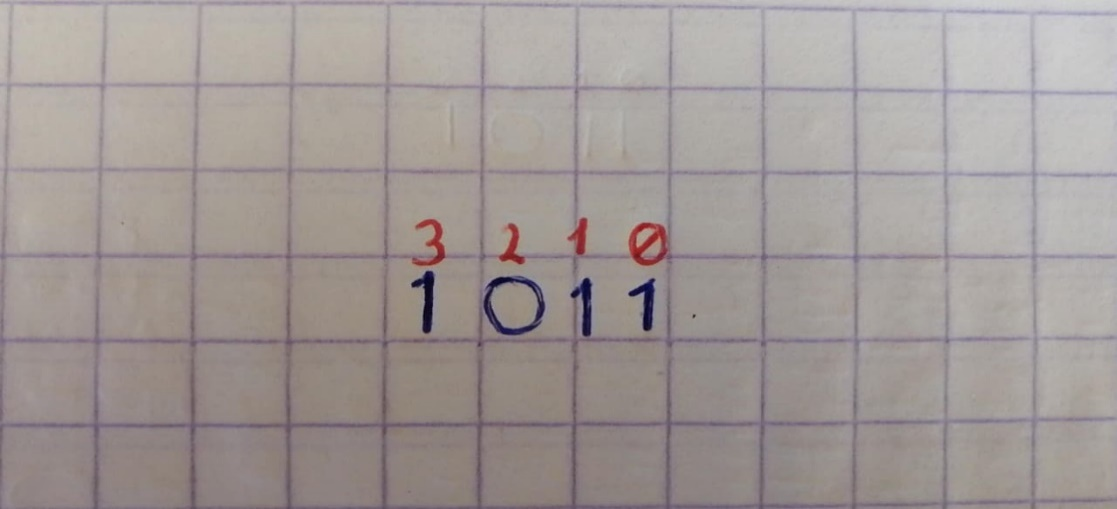 3 2 1 0
1 0 1 1